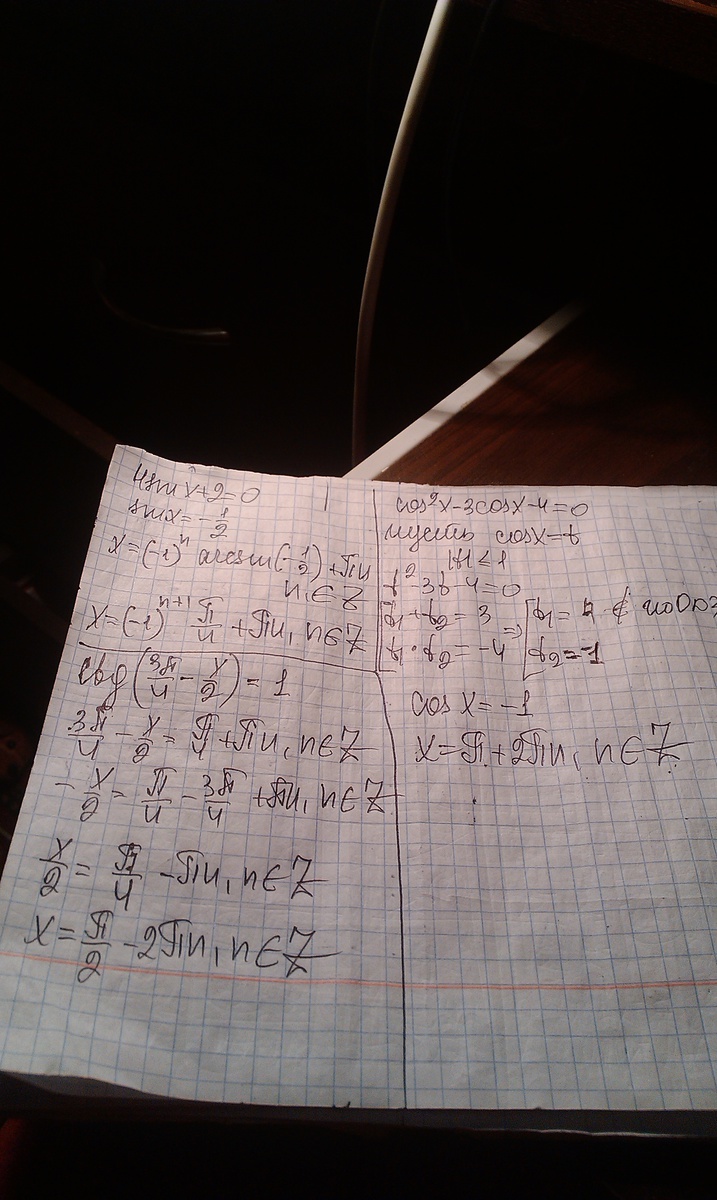 4sinx+2=0
sinx=-1/2
x=(-1)^n arcsin(-1/2)+Пn
n∈Z
x=(-1)^{n+1} П/4+Пn, n∈Z
ctg(3П/4-x/2)=1
3П/4-x/2=П/4+Пn, n∈Z
-x/2=П/4-3П/4+Пn, n∈Z
x/2=П/4-Пn, n∈Z
x=П/2-2Пn, n∈Z
cos²x-3cosx-4=0
пусть cosx=t
|t|≤1
t²-3t-4=0
t₁+t₂=3 ⇒ t₁=4 ∉ по ОДЗ
t₁·t₂=-4 t₂=-1
cosx=-1
x=П+2Пn, n∈Z